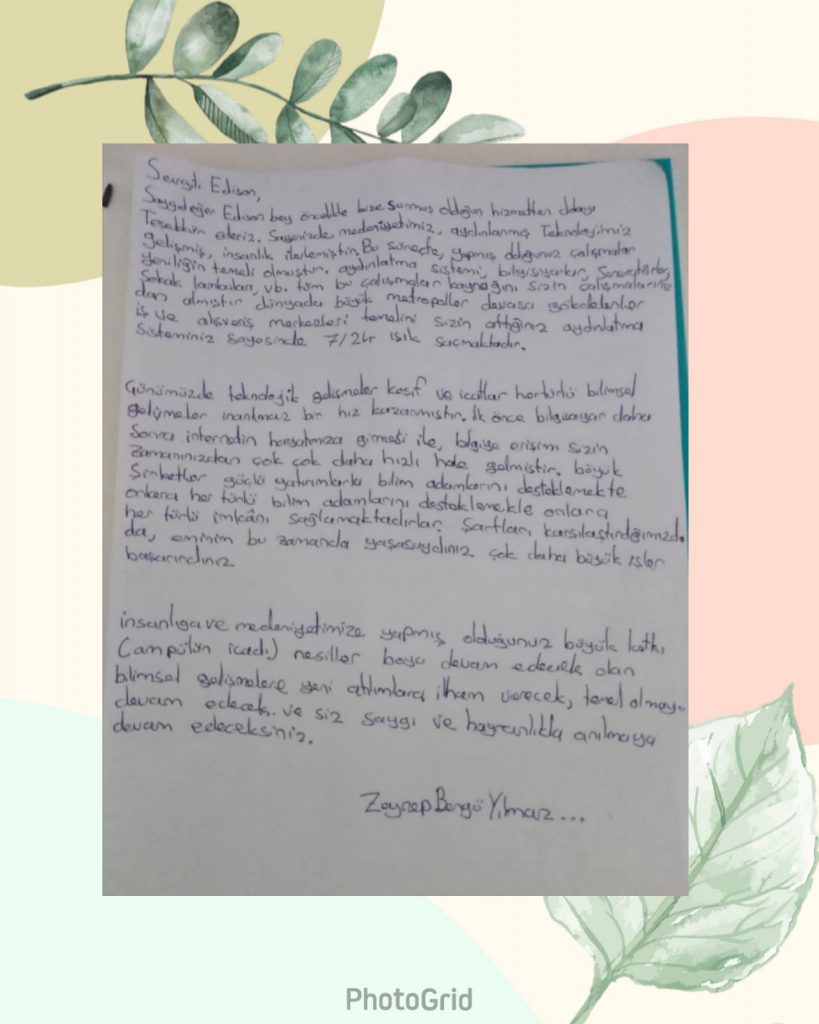 Sevgili Edison,
Saygıdeğer Edison bey öncelikle bize sunmuş olduğun hizmetten dolayı
Teşekkür ederiz. Sayenizde medeniyetimiz, aydınlanmış Teknolojimiz
gelişmiş, insanlık ilerlemiştir. Bu süreçte, yapmış olduğunuz çalışmalar
yeniliğin temeli olmuştur. aydınlatma sistemi, bilgisiyarlar,
Sokak lambaları, vb. tüm bu çalışmalar kaynağını sizin çalışmalarınız
dan almıştır dünyada büyük metropoller devasa gökdelenler
iş ve alışveriş merkezleri temelini sizin attığınız aydınlatma
Sisteminiz sayesinde 7/24 ışık saçmaktadır.
Günümüzde teknolojik gelişmeler keşif ve icatlar hertürlü bilimsel
gelişmeler inanılmaz bir hız kazanmıştır. ilk önce bilgisayar daha
Sonra internetin hayatımıza girmesi ile, bilgiye erişim sizin
zamanınızdan çok çok daha hızlı hale gelmiştir. büyük
Şirketler güçlü yatırımlarla bilim adamlarını desteklemekte
onlara her türlü bilim adamlarını desteklemekle onlara
her türlü imkânı sağlamaktadırlar. Şartları karşılaştırdığımızda
da, eminim bu zamanda yaşasaydınız çok daha büyük işler
başarırdınız
insanlığa ve medeniyetimize yapmış olduğunuz büyük katkı
(ampülün icadı) nesiller boyu devam edecek olan
bilimsel gelişmelere yeni atılımlara ilham verecek, temel olmaya
devam edecek. ve siz saygı ve hayranlıkla anılmaya
devam edeceksiniz.
Zeynep Bengü Yılmaz...
PhotoGrid